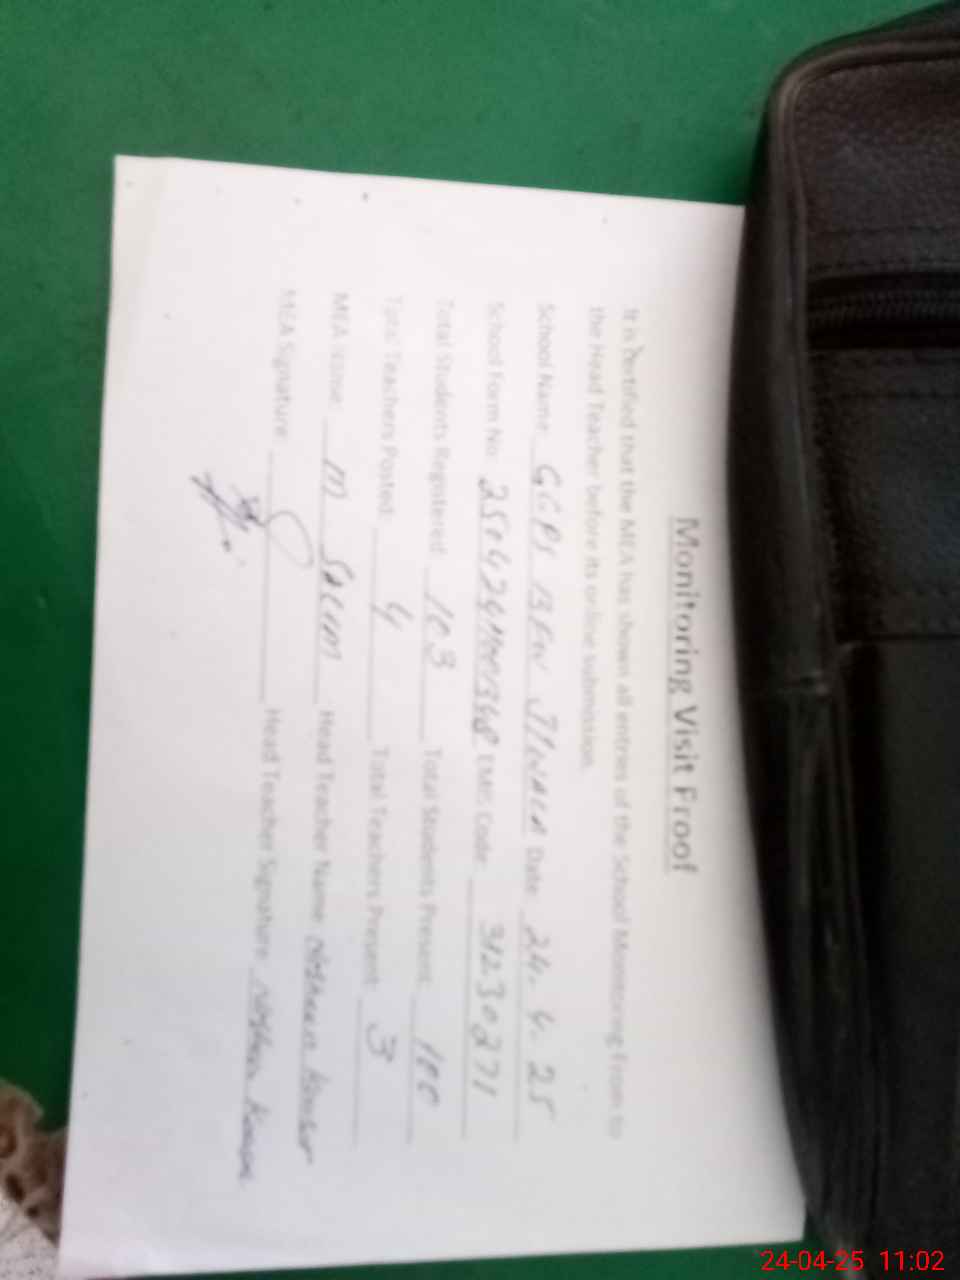 Monitoring Visit Proof
It is Certified that the MEA has shown all entries of the School Monitoring From to
the Head Teacher before its online submission.
School Name: GGPS Date: 24. 4. 25
School Form No: EMIS Code: 31230271
Total Students Registered: 103 Total Students Present: 100
Total Teachers Posted: 4 Total Teachers Present: 3
MEA Name: M Salim Head Teacher Name: Kousar
MEA Signature: Head Teacher Signature:
24-04-25 11:02